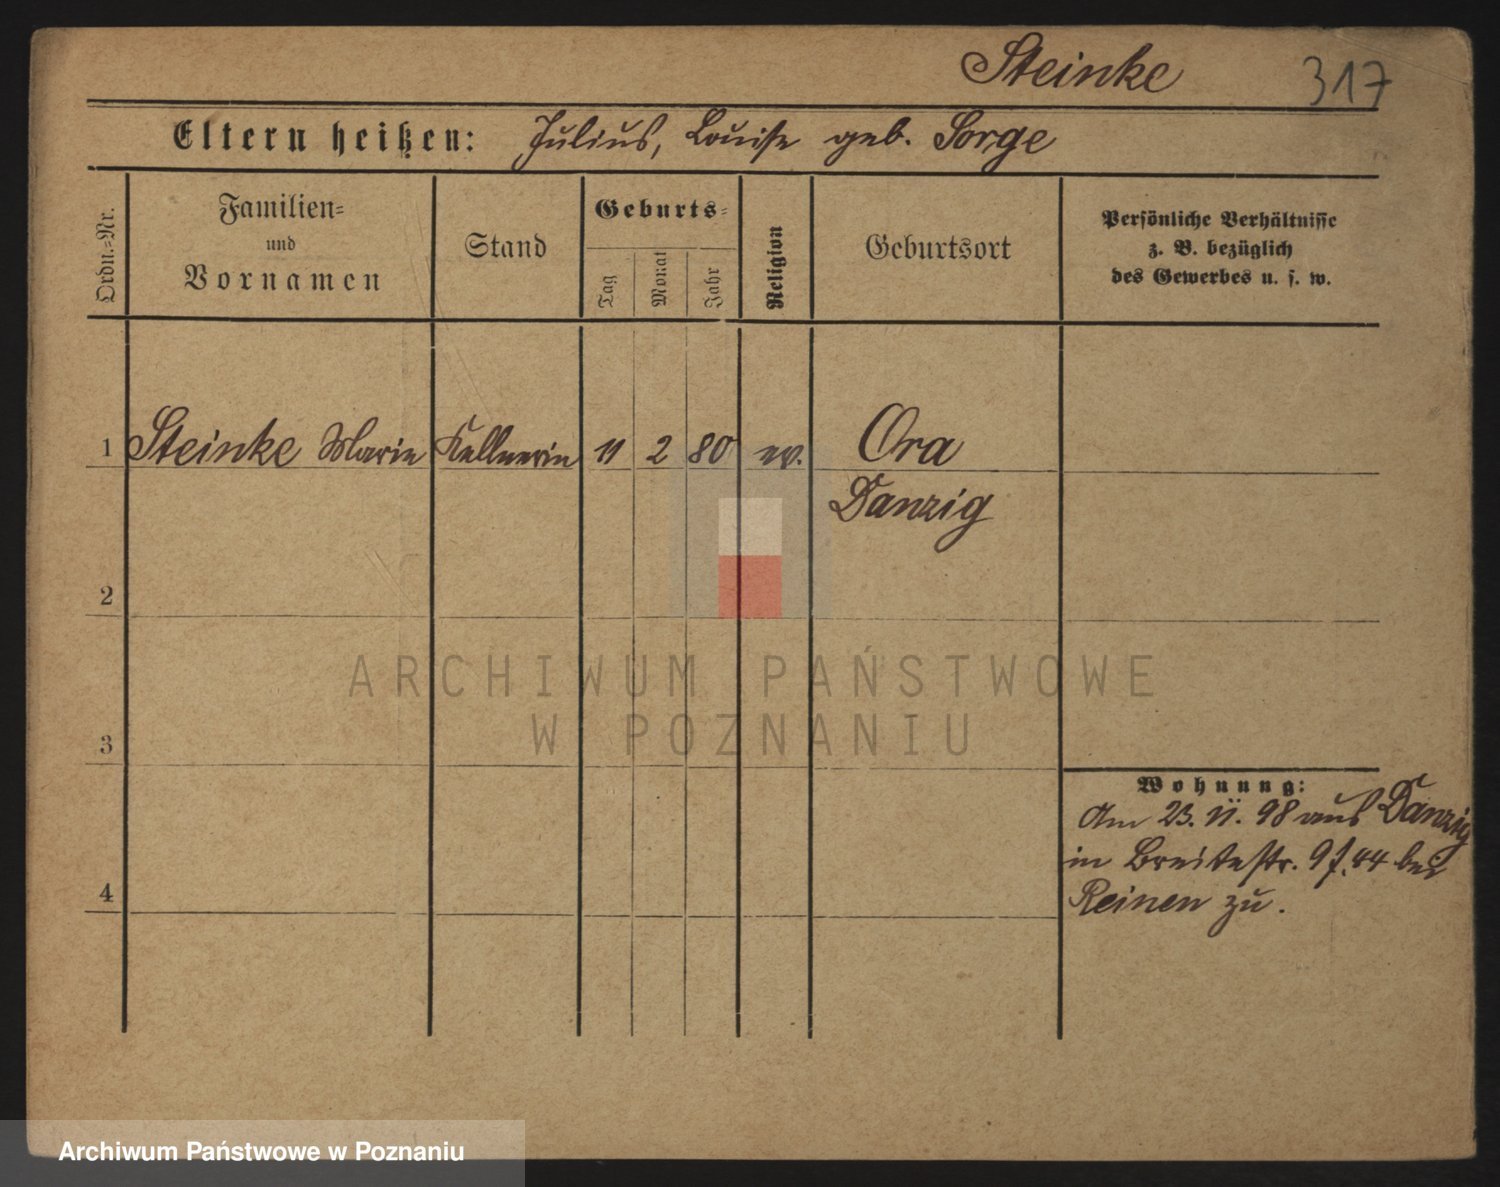 Steinke 317
Eltern heißen: Julius, Louise geb. Sorge
Ordn.-Nr.
Familien-
und
Vornamen
Stand
Geburts-
Tag
Monat
Jahr
Religion
Geburtsort
Persönliche Verhältnisse
z. B. bezüglich
des Gewerbes u. s. w.
1 Steinke Marie Kellnerin 11 2 80 ev. Ora
Danzig
2
ARCHIWUM PAŃSTWOWE
W POZNANIU
3
Wohnung:
Am 23. 11. 98 aus Danzig
in Breitestr. 9 f. 44 bei
4
Reinen zu.
Archiwum Państwowe w Poznaniu